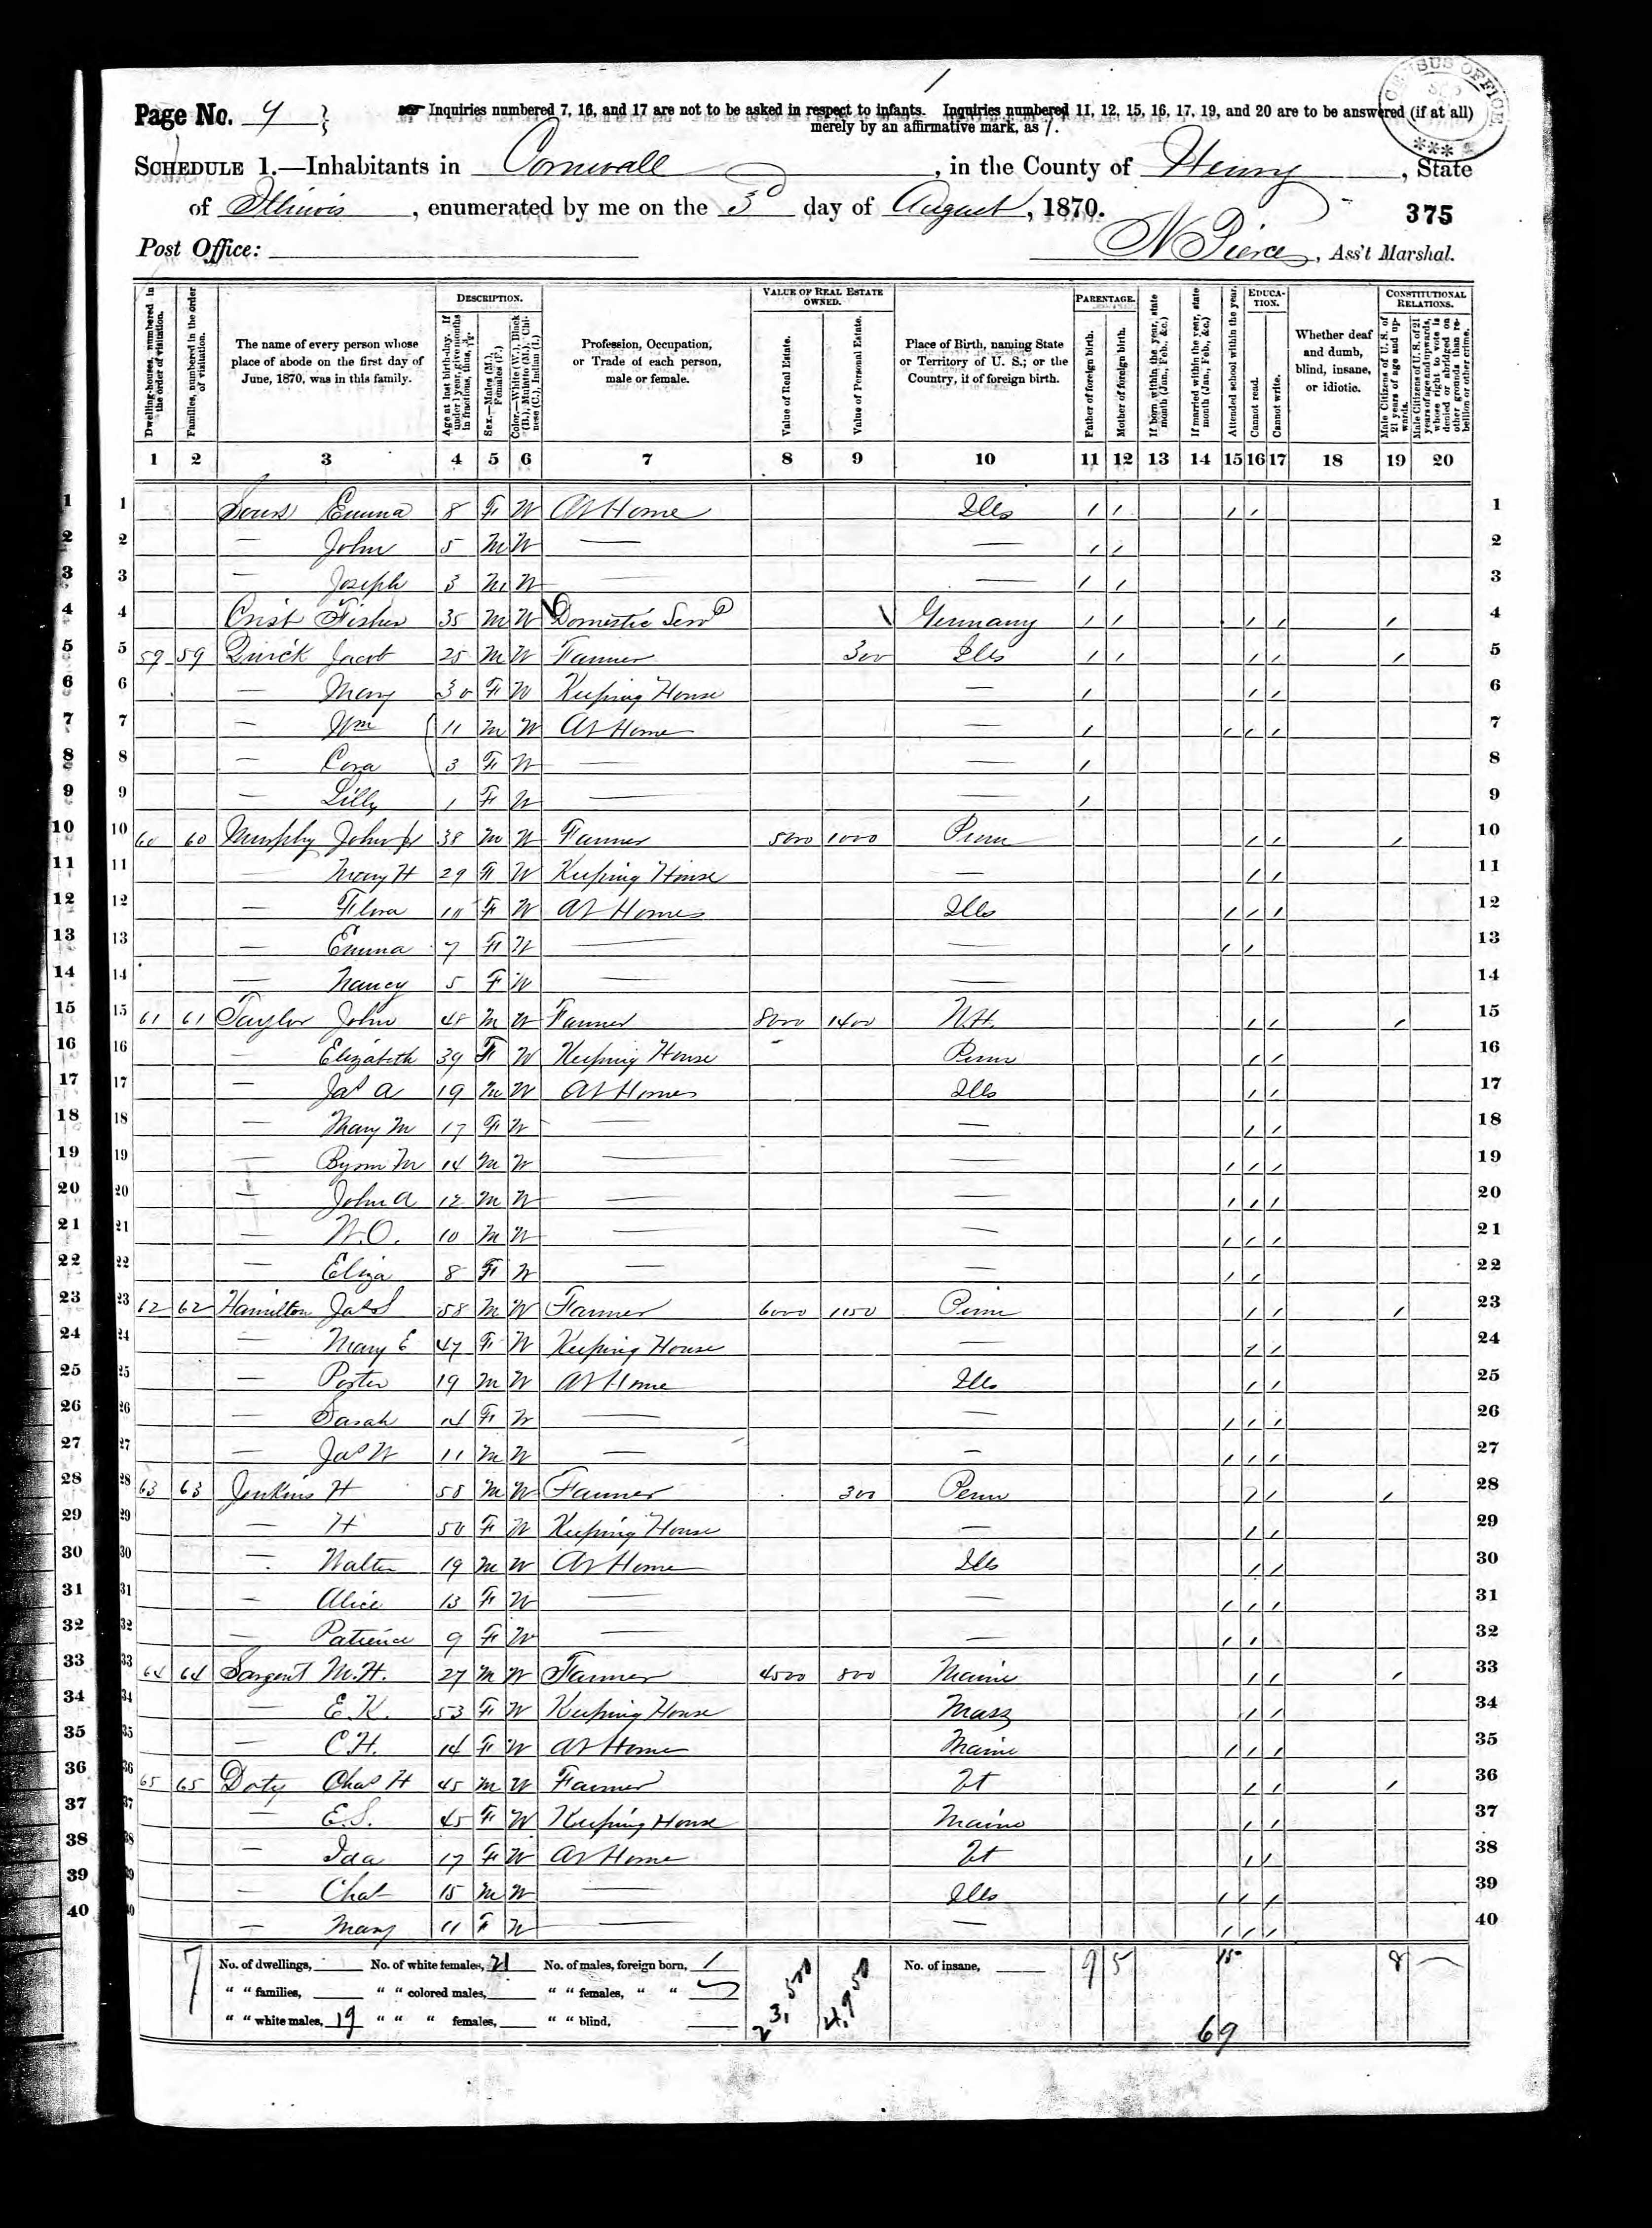 Page No. 9
Inquiries numbered 7, 16, and 17 are not to be asked in respect to infants. Inquiries numbered 11, 12, 15, 16, 17, 19, and 20 are to be answered (if at all)
merely by an affirmative mark, as /.
CENSUS OFFICE
SCHEDULE 1.—Inhabitants in Cornwall, in the County of Henry, State
of Illinois, enumerated by me on the 3d day of August, 1870.
375
Post Office:
N Pierce, Ass't Marshal.
Dwelling-houses, numbered in the order of visitation.
Families, numbered in the order of visitation.
The name of every person whose place of abode on the first day of June, 1870, was in this family.
DESCRIPTION.
Age at last birth-day. If under 1 year, give months in fractions, thus, 3/12.
Sex.—Males (M.), Females (F.)
Color.—White (W.), Black (B.), Mulatto (M.), Chinese (C.), Indian (I.)
Profession, Occupation, or Trade of each person, male or female.
VALUE OF REAL ESTATE OWNED.
Value of Real Estate.
Value of Personal Estate.
Place of Birth, naming State or Territory of U. S.; or the Country, if of foreign birth.
PARENTAGE.
Father of foreign birth.
Mother of foreign birth.
If born within the year, state month (Jan., Feb., &c.)
If married within the year, state month (Jan., Feb., &c.)
Attended school within the year.
EDUCATION.
Cannot read.
Cannot write.
Whether deaf and dumb, blind, insane, or idiotic.
CONSTITUTIONAL RELATIONS.
Male Citizens of U. S. of 21 years of age and upwards.
Male Citizens of U. S. of 21 years of age and upwards, whose right to vote is denied or abridged on other grounds than rebellion or other crime.
1 2 3 4 5 6 7 8 9 10 11 12 13 14 15 16 17 18 19 20
1 Emma 8 F W At Home Ills / / / / 1
2 — John 5 M W — — / / 2
3 — Joseph 3 M W — — / / 3
4 Crist Fisher 35 M W Domestic Servt Germany / / / / / 4
5 59 59 Quick Jacob 25 M W Farmer 300 Ills / / / / / 5
6 — Mary 30 F W Keeping House — / / / 6
7 — Wm 11 M W At Home — / / / / 7
8 — Cora 3 F W — — / 8
9 — Lilly 1 F W — — / 9
10 60 60 Murphy John 38 M W Farmer 5000 1000 Penn / / / 10
11 — Mary H 29 F W Keeping House — / / 11
12 — Flora 10 F W At Home Ills / / / 12
13 — Emma 7 F W — — / / 13
14 — Nancy 5 F W — — 14
15 61 61 Taylor John 48 M W Farmer 8000 1400 N.H. / / / 15
16 — Elizabeth 39 F W Keeping House Penn / / 16
17 — Jas A 19 M W At Home Ills / / 17
18 — Mary M 17 F W — — / / 18
19 — Byron M 14 M W — — / / / 19
20 — John A 12 M W — — / / / 20
21 — W.O. 10 M W — — / / / 21
22 — Eliza 8 F W — — / / 22
23 62 62 Hamilton Jas S 58 M W Farmer 6000 1150 Penn / / / 23
24 — Mary E 47 F W Keeping House — / / 24
25 — Porter 19 M W At Home Ills / / 25
26 — Sarah 14 F W — — / / / 26
27 — Jas W 11 M W — — / / / 27
28 63 63 Jenkins H 58 M W Farmer 300 Penn / / / 28
29 — H 50 F W Keeping House — / / 29
30 — Walter 19 M W At Home Ills / / 30
31 — Alice 13 F W — — / / / 31
32 — Patience 9 F W — — / / 32
33 64 64 Sargent M.H. 27 M W Farmer 4500 800 Maine / / / 33
34 — E.K. 53 F W Keeping House Mass / / 34
35 — C.H. 14 F W At Home Maine / / / 35
36 65 65 Doty Chas H 45 M W Farmer Vt / / / 36
37 — E.S. 45 F W Keeping House Maine / / 37
38 — Ida 17 F W At Home Vt / / 38
39 — Chas 15 M W — Ills / / / 39
40 — Mary 11 F W — — / / / 40
7 No. of dwellings, No. of white females, 21 No. of males, foreign born, 1 23,500 4,950 No. of insane, 9 5 15 8 —
" " families, " " colored males, " " females, " "
" " white males, 19 " " " females, " " blind, 69